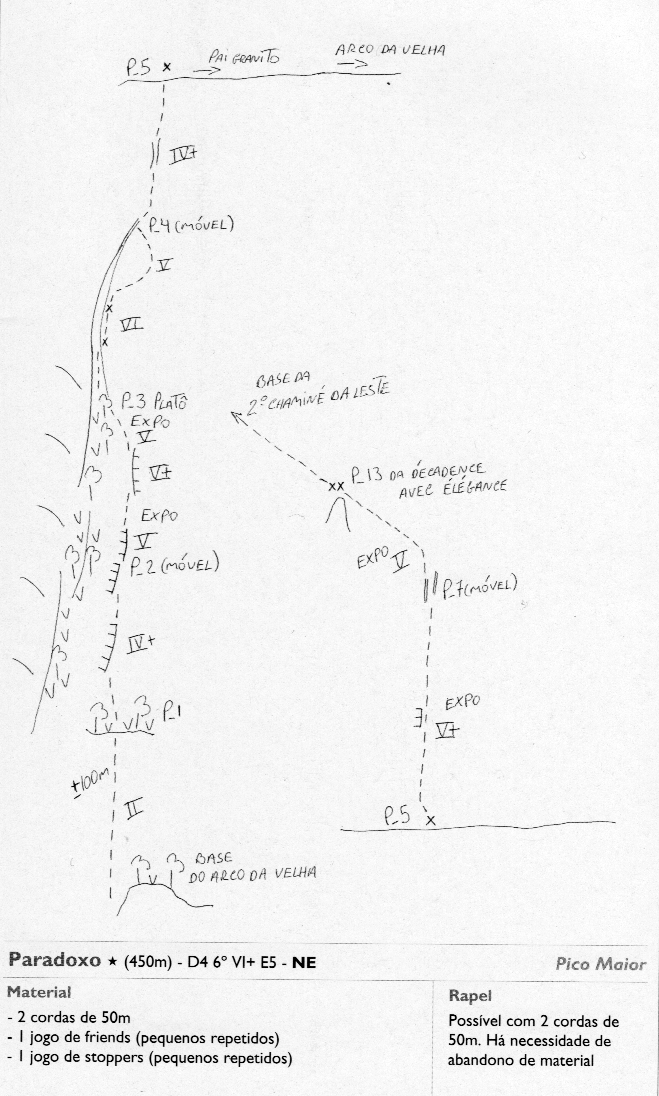 P_5 x
PAI GRANITO
ARCO DA VELHA
IV+
P_4 (MÓVEL)
V
x
VI
x
P_3 PLATÔ
EXPO
V
V+
EXPO
V
P_2 (MÓVEL)
IV+
P_1
±100m
II
BASE
DO ARCO DA VELHA
BASE DA
2º CHAMINÉ DA LESTE
xx
P_13 DA DÉCADENCE
AVEC ÉLÉGANCE
EXPO V
P_7 (MÓVEL)
EXPO
V+
P_5 x
Paradoxo ★ (450m) - D4 6º VI+ E5 - NE
Pico Maior
Material
- 2 cordas de 50m
- 1 jogo de friends (pequenos repetidos)
- 1 jogo de stoppers (pequenos repetidos)
Rapel
Possível com 2 cordas de
50m. Há necessidade de
abandono de material